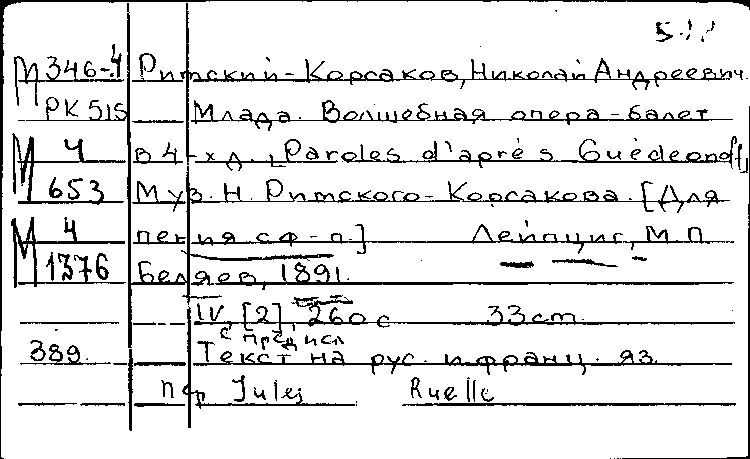 М 346-4 Римский-Корсаков, Николай Андреевич.
РК 515 Млада. Волшебная опера-балет
М 4 в 4-х д. [Paroles d'après Guèdeonff]
653 Муз. Н. Римского-Корсакова. [Для
М 4 пения с ф-п.] Лейпциг, М.П.
1376 Беляев, 1891.
IV, [2], 260 с 33cm.
с предисл
389. Текст на рус. и франц. яз.
пер Jules Ruelle